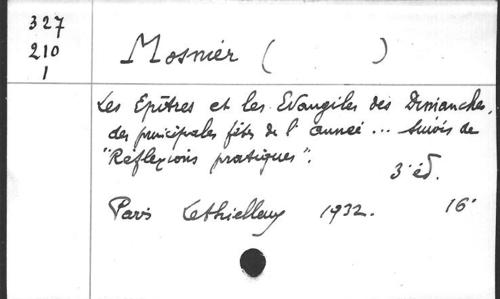 327
210
1
Mosnier ( )
Les Epîtres et les Evangiles des Dimanches,
des principales fêtes de l'année ... suivis de
"Réflexions pratiques".
3'éd.
Paris Lethielleux 1932. 16°